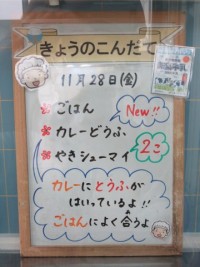 きょうのこんだて
11月28日(金)
ごはん
New!!
カレーどうふ
やきシューマイ 2こ
カレーにとうふが
はいっているよ!!
ごはんによく合うよ